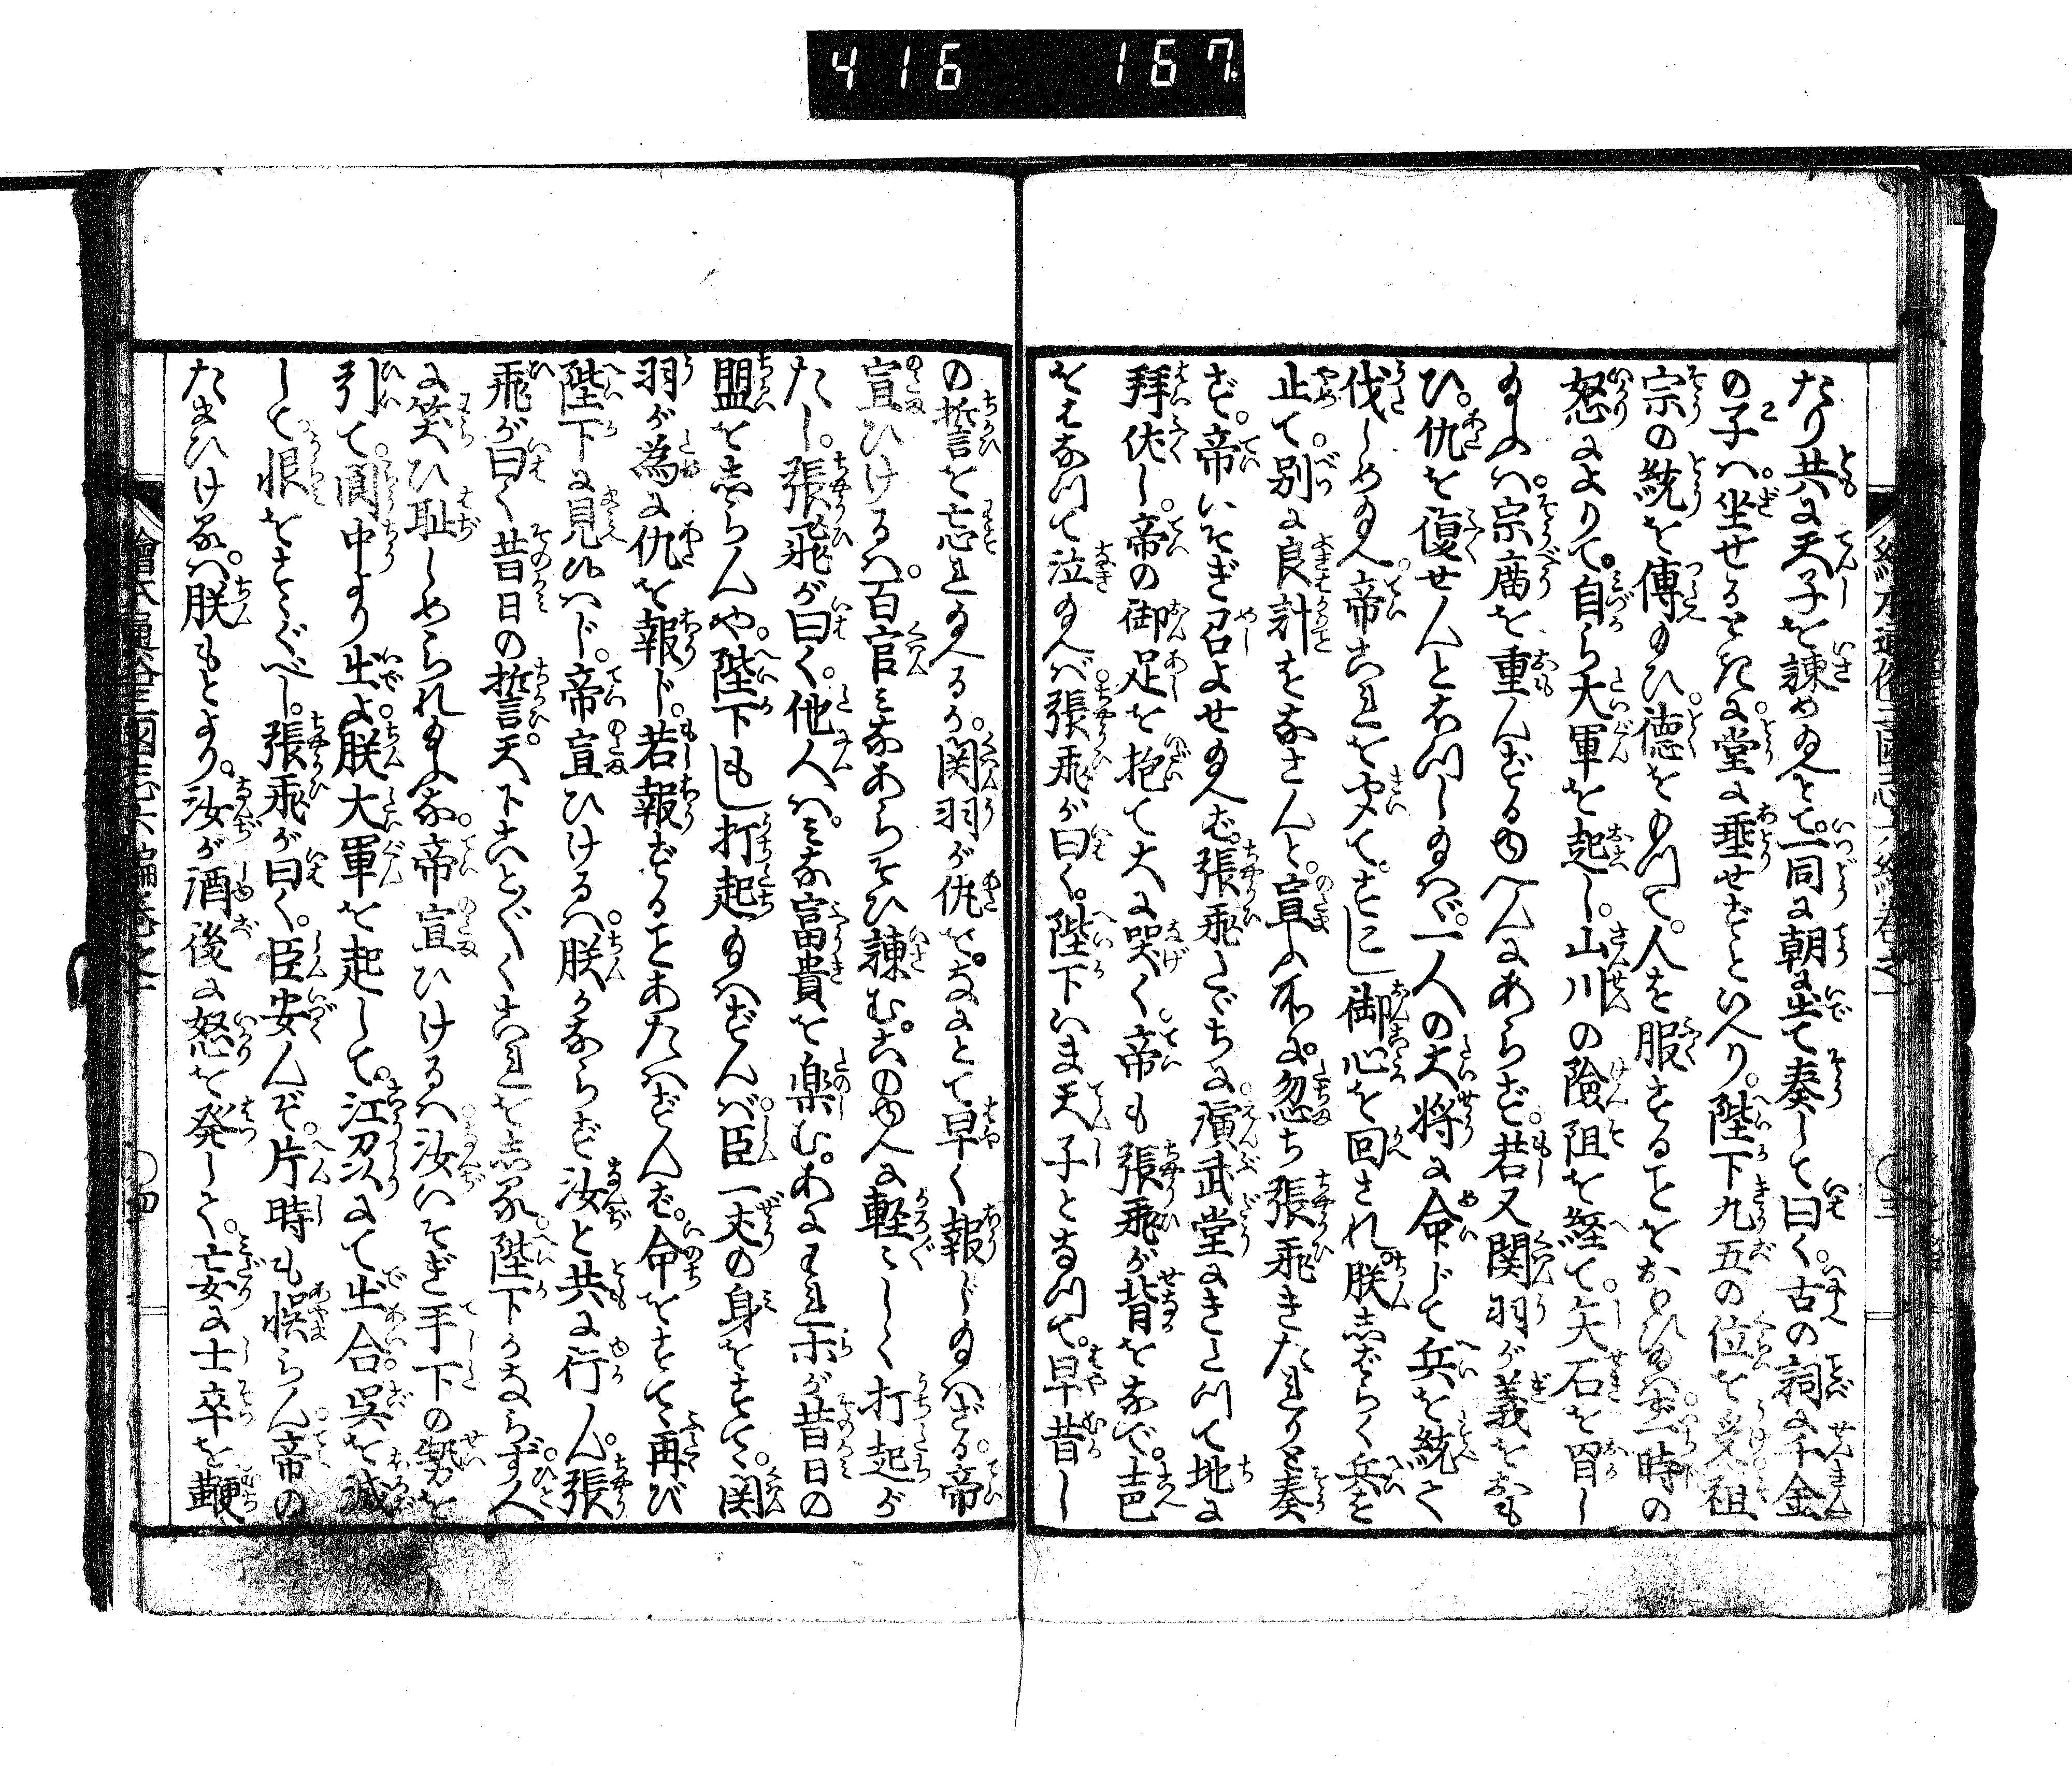 416 167
たり共に天子を諫め給へとて一同に朝に出て奏して曰く古の詞に千金
の子ハ坐せるときに堂に垂せずといへり陛下九五の位を受祖
宗の統を傳給ひ徳をのつて人を服することをおもひ給ハず一時の
怒によりて自ら大軍を起し山川の險阻を経て矢石を冒し
給ふハ宗廟を重んずるゆへんにあらず若又関羽が義をおも
ひ仇を復せんとおぼし給ハヾ一人の大将に命じて兵を統て
伐しめ給へ帝これを聞てすこし御心を回され朕しばらく兵を
止て別に良計をなさんと宣ふ所に忽ち張飛きたれりと奏
す帝いそぎ召よせ給へば張飛たゞちに演武堂にきたつて地に
拜伏し帝の御足を抱て大に哭く帝も張飛が背をなで
をはなつて泣給へバ張飛が曰く陛下いま天子となつて早昔し
の誓を忘れ給へるか関羽が仇をなにとて早く報じ給ハざる帝
宣ひけるハ百官ミなあらそひ諫むこのゆへに軽〻しく打起が
たし張飛が曰く他人ハミな富貴を楽むあにわれホが昔日の
盟をしらんや陛下もし打起給ハずんバ臣一夫の身をすてゝ関
羽が為に仇を報じ若報ずることあたハずんば命をすてゝ再び
陛下に見ゆハじ帝宣ひけるハ朕かならず汝と共に行ん張
飛が曰く昔日の誓天下ことごとくこれをしる陛下かならず人
に笑ひ恥しめられ給ふな帝宣ひけるハ汝いそぎ手下の勢を
引て閬中より出よ朕大軍を起して江州にて出合呉を滅
して恨をそゝぐべし張飛が曰く臣安んぞ片時も悞らん帝の
たまひけるハ朕もとより汝が酒後に怒を発して妄に士卒を鞭